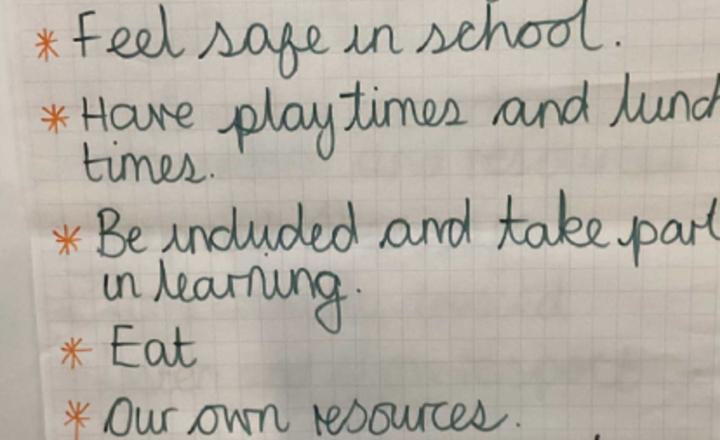 * Feel safe in school.
* Have playtimes and lunch
times.
* Be included and take part
in learning.
* Eat
* Our own resources.